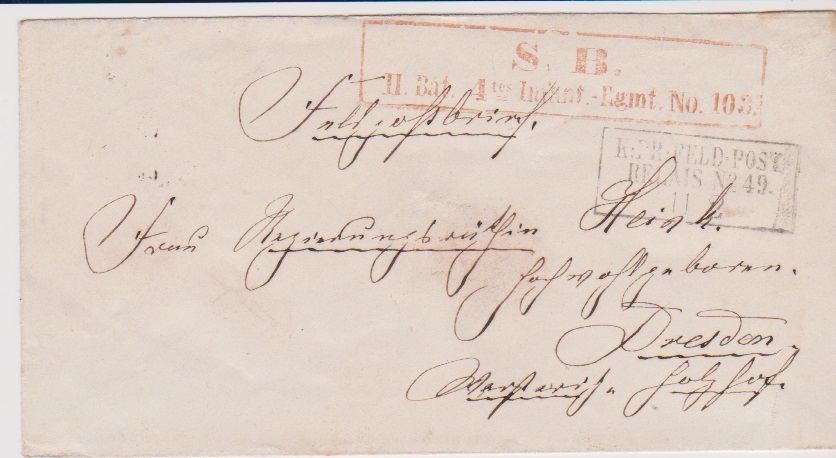 S. B.
II. Bat. 4tes Infant.-Rgmt. No. 103.
Feldpostbrief.
K:PR:FELD-POST
RELAIS No 49.
11 2
Frau Regierungsräthin
hochwohlgeboren.
Dresden.
Holzhof.